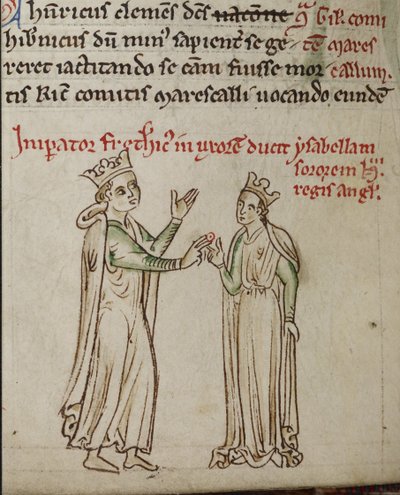 Henricus clemens dc̃s nacõne q̃ Gil. comi
hib'nicus dũ min' sapient' se ge- tẽ mares
reret iactitando se cãm fuisse mor- callum.
tis Ric̃ comitis marescalli uocando eundẽ
Imperator frethic' in uxorẽ ducit ysabellam
sororem h.
regis angl'.